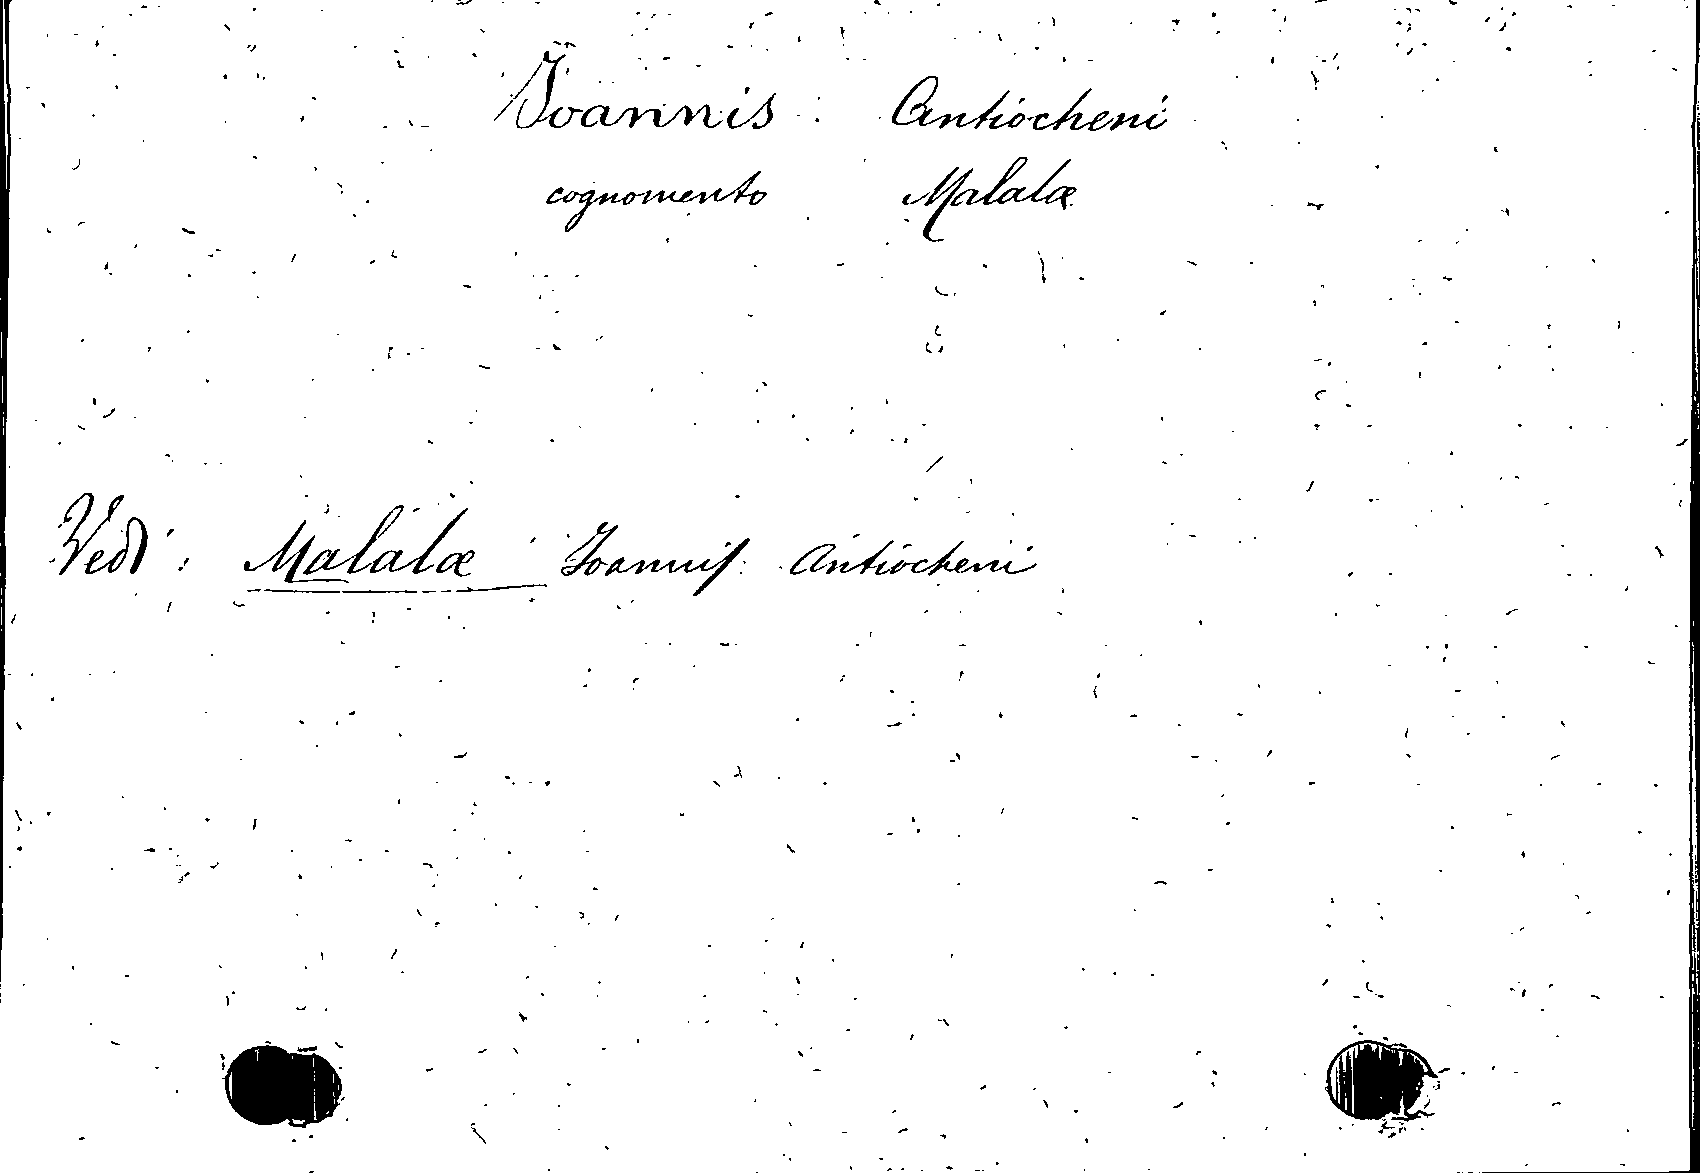 Joannis Antiocheni
cognomento Malalæ
Vedi: Malalæ Joannis Antiocheni